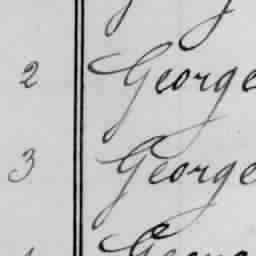 2 George
3 George